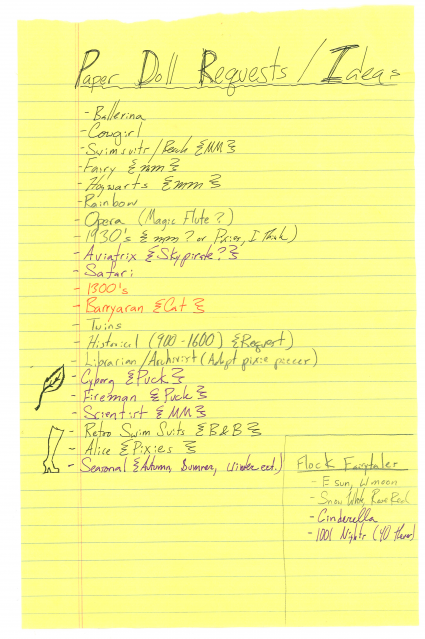 Paper Doll Requests / Ideas
- Ballerina
- Cowgirl
- Swimsuits/Beach {MM}
- Fairy {mm}
- Hogwarts {mm}
- Rainbow
- Opera (Magic Flute?)
- 1930's {mm? or Pixies, I think)
- Aviatrix {Sky pirate?}
- Safari
- 1300's
- Barryaran {Cat}
- Twins
- Historical (900-1600) {Request)
- Librarian/Archivist (Adapt pixie)
- Cyborg {Puck}
- Fireman {Puck}
- Scientist {MM}
- Retro Swim Suits {B&B}
- Alice {Pixies}
- Seasonal {Autumn, Summer, Winter ect.)
Flock Fairytales
- E sun, W moon
- Snow White, Rose Red
- Cinderella
- 1001 Nights (40 thieves)